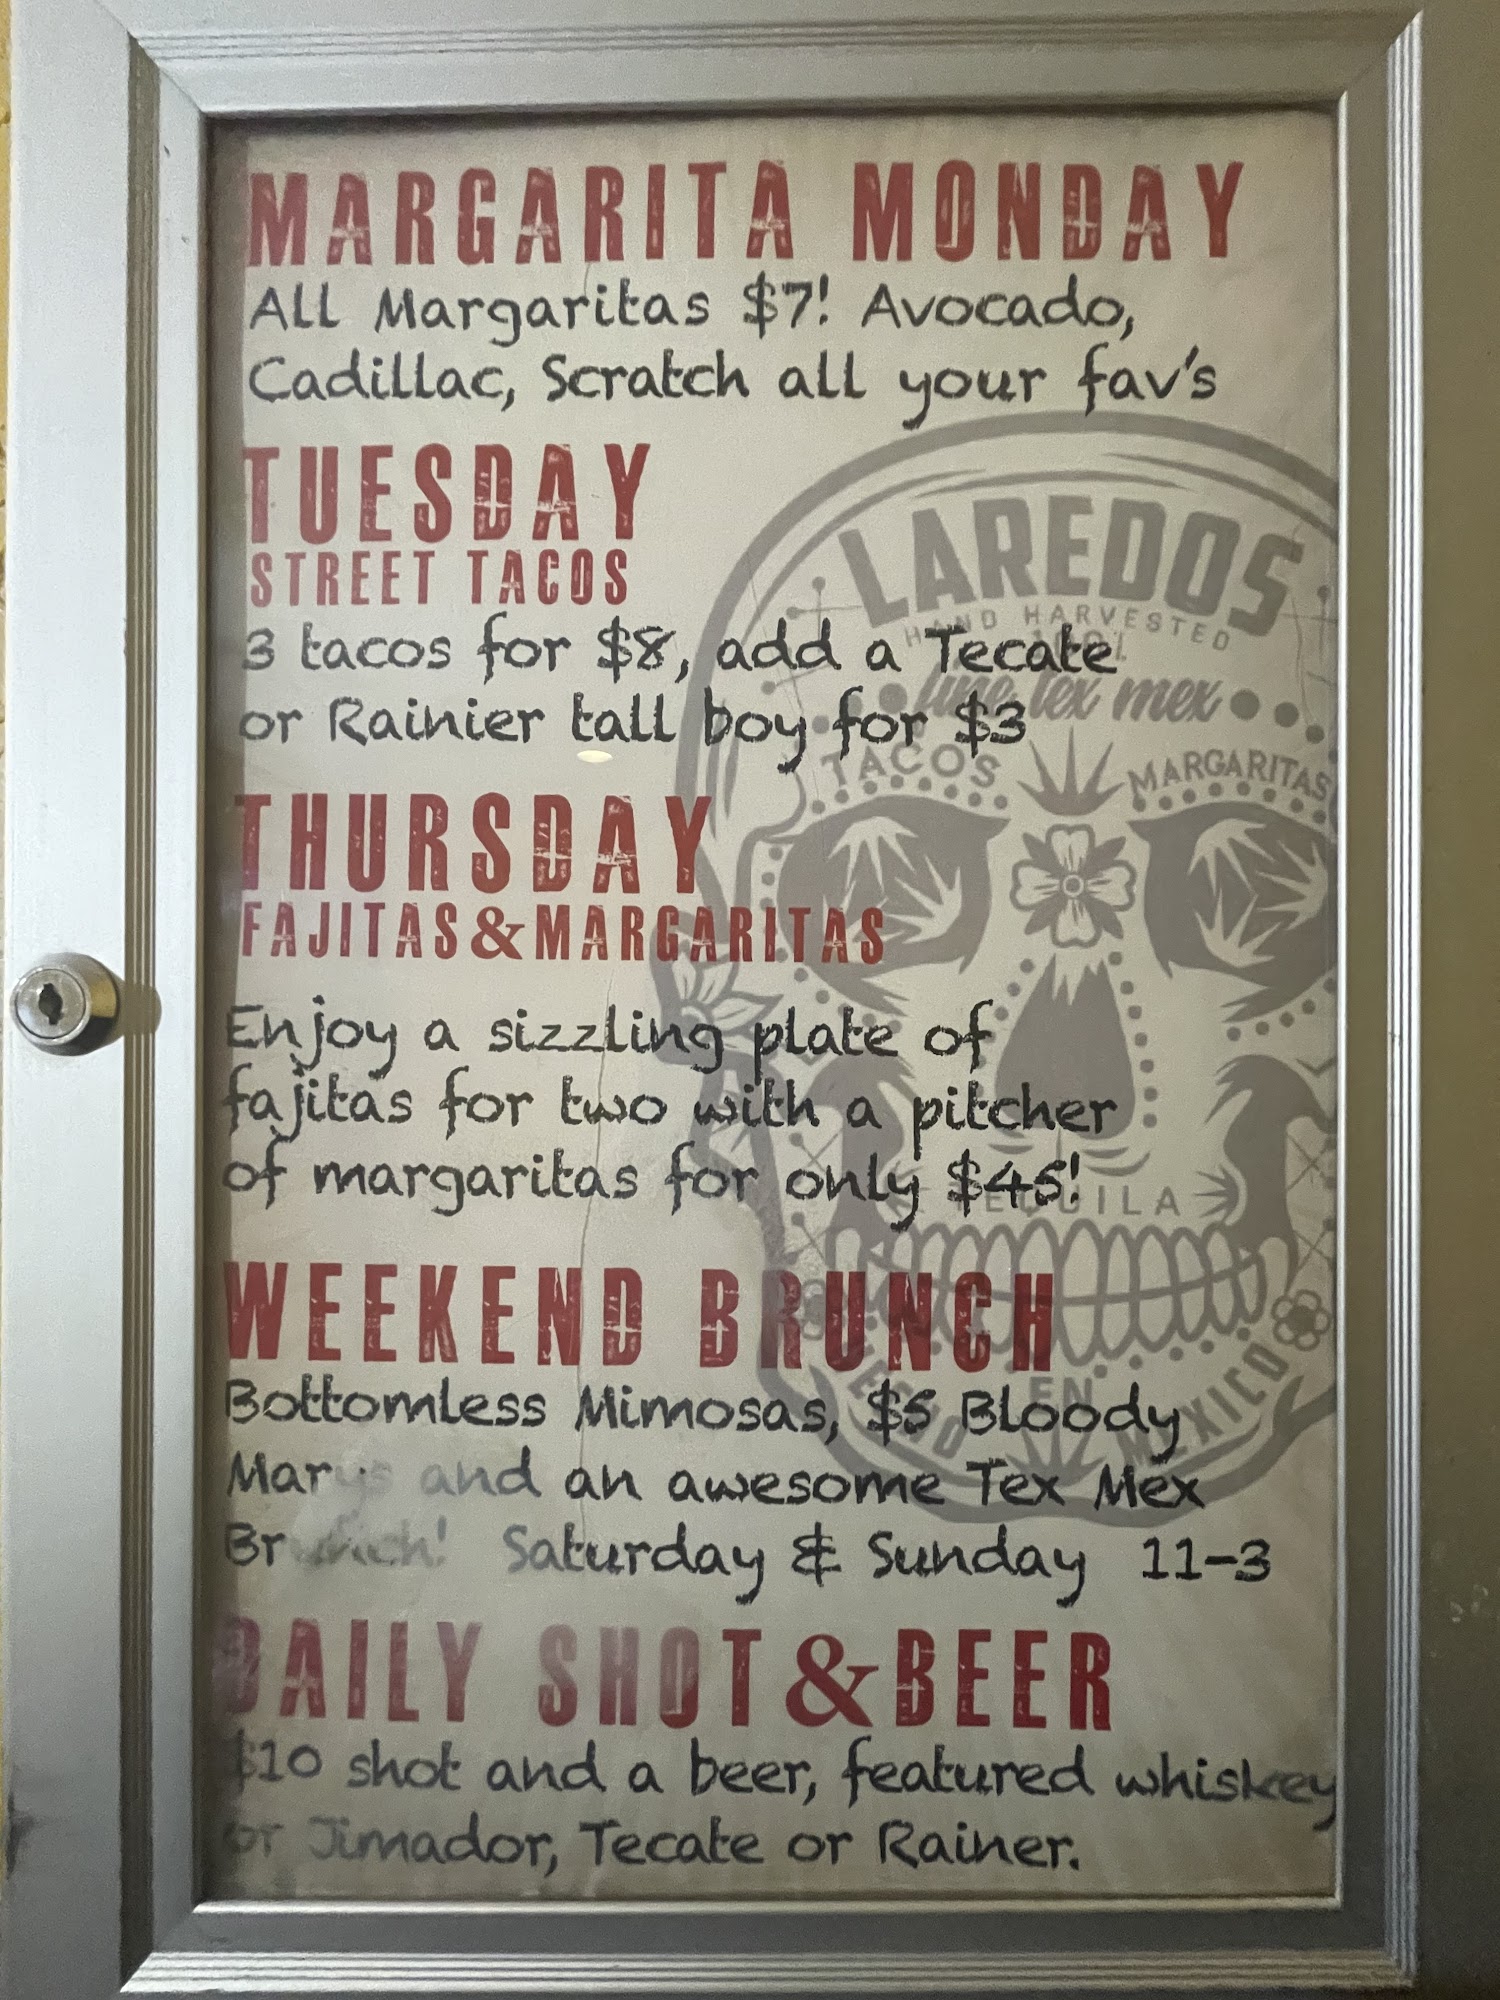 MARGARITA MONDAY
All Margaritas $7! Avocado,
Cadillac, Scratch all your fav's
TUESDAY
STREET TACOS
3 tacos for $8, add a Tecate
or Rainier tall boy for $3
THURSDAY
FAJITAS & MARGARITAS
Enjoy a sizzling plate of
fajitas for two with a pitcher
of margaritas for only $45!
WEEKEND BRUNCH
Bottomless Mimosas, $5 Bloody
Marys and an awesome Tex Mex
Brunch! Saturday & Sunday 11-3
DAILY SHOT & BEER
$10 shot and a beer, featured whiskey
or Jimador, Tecate or Rainer.
LAREDOS
HAND HARVESTED
100%
fine tex mex
TACOS
MARGARITAS
TEQUILA
HECHO EN MEXICO